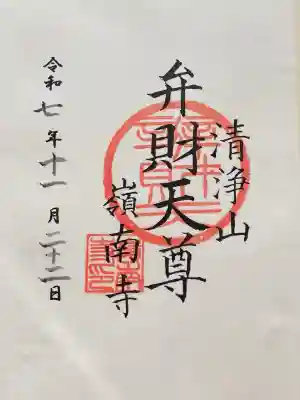 清浄山
弁財天尊
嶺南寺
令和七年十一月二十二日